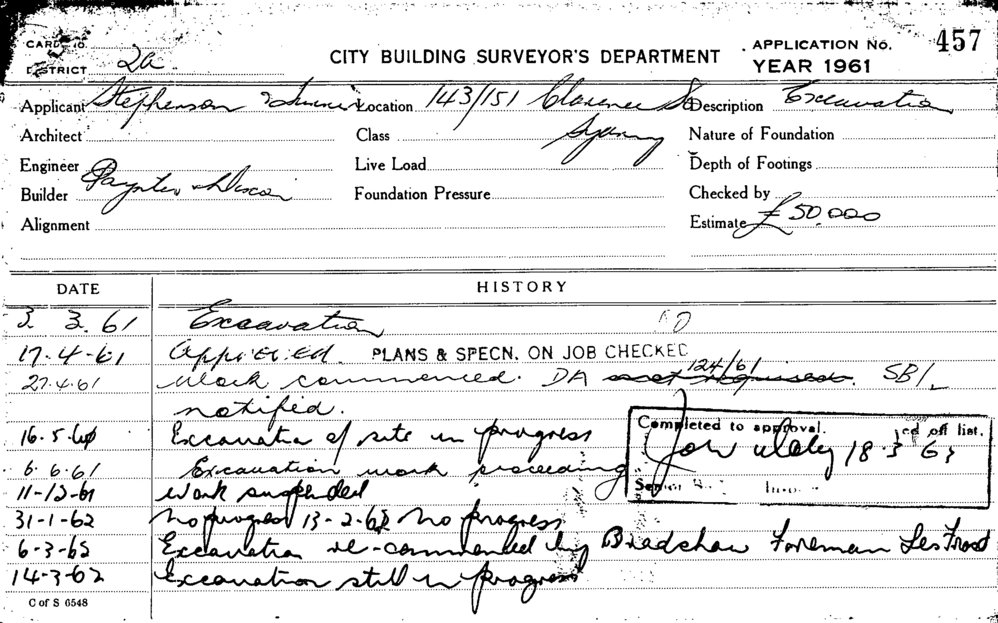 CARD No.
DISTRICT 2a
CITY BUILDING SURVEYOR'S DEPARTMENT
APPLICATION No. 457
YEAR 1961
Applicant Stephenson & Location 143/151 Clarence St Description Excavation
Sydney
Architect Class Nature of Foundation
Engineer Live Load Depth of Footings
Builder Paynter & Dixon Foundation Pressure Checked by
Alignment Estimate £50.000
DATE HISTORY
3. 3. 61 Excavation
17-4-61 Approved. PLANS & SPECN. ON JOB CHECKED
27.4.61 Work commenced. DA 124/61 not required. SB/
notified.
16.5.61 Excavation of site in progress
6.6.61 Excavation work proceeding
Completed to approval.
18-3 63
off list.
Senior
11-12-61 Work suspended
31-1-62 No progress 13-2-62 No progress
6-3-62 Excavation re-commended by Bradshaw Foreman Les Frost
14-3-62 Excavation still in progress
C of S 6548